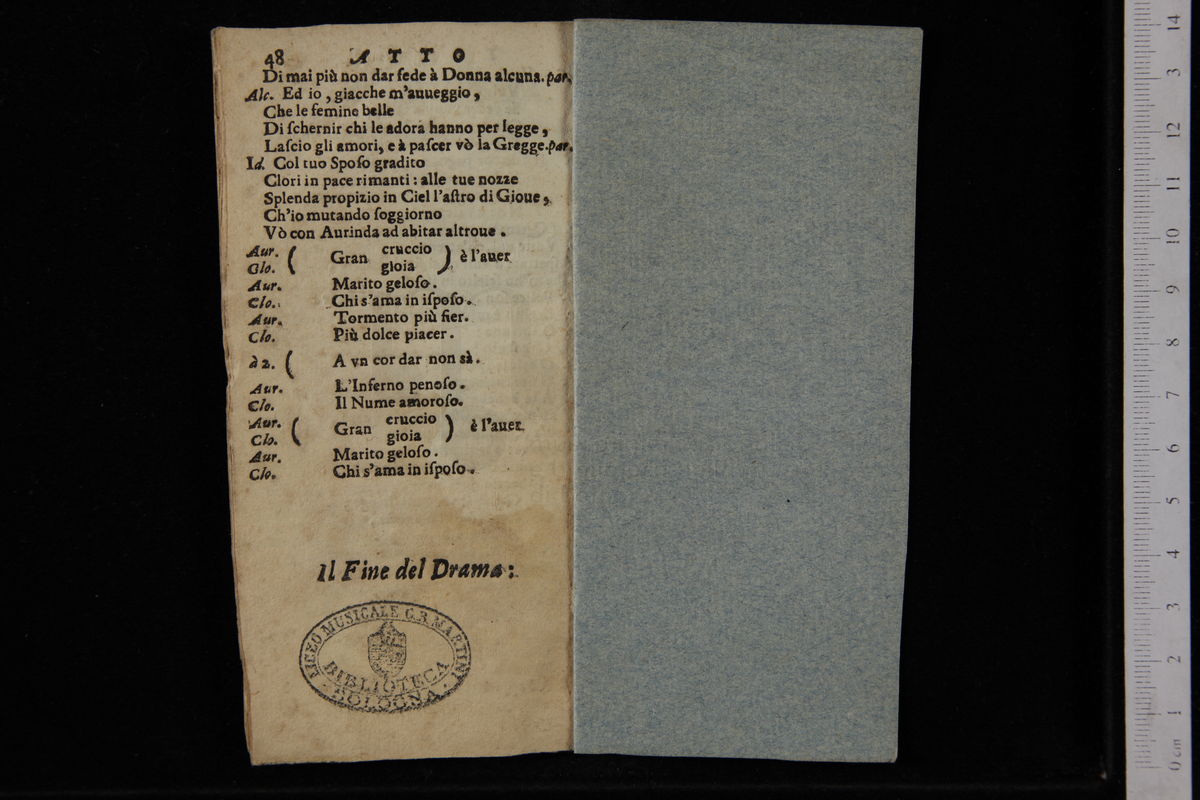 48 ATTO
Di mai più non dar fede à Donna alcuna. par.
Alc. Ed io, giacche m'auueggio,
Che le femine belle
Di ſchernir chi le adora hanno per legge,
Laſcio gli amori, e à paſcer vò la Gregge. par.
Id. Col tuo Spoſo gradito
Clori in pace rimanti: alle tue nozze
Splenda propizio in Ciel l'aſtro di Gioue,
Ch'io mutando ſoggiorno
Vò con Aurinda ad abitar altroue.
Aur. ( Gran cruccio ) è l'auer
Clo. ( gioia )
Aur. Marito geloſo.
Clo. Chi s'ama in iſpoſo.
Aur. Tormento più fier.
Clo. Più dolce piacer.
à 2. ( A vn cor dar non sà.
Aur. L'Inferno penoſo.
Clo. Il Nume amoroſo.
Aur. ( Gran cruccio ) è l'auer
Clo. ( gioia )
Aur. Marito geloſo.
Clo. Chi s'ama in iſpoſo.
Il Fine del Drama:
LICEO MUSICALE G.B. MARTINI
BIBLIOTECA
BOLOGNA
0 cm 1 2 3 4 5 6 7 8 9 10 11 12 3 14